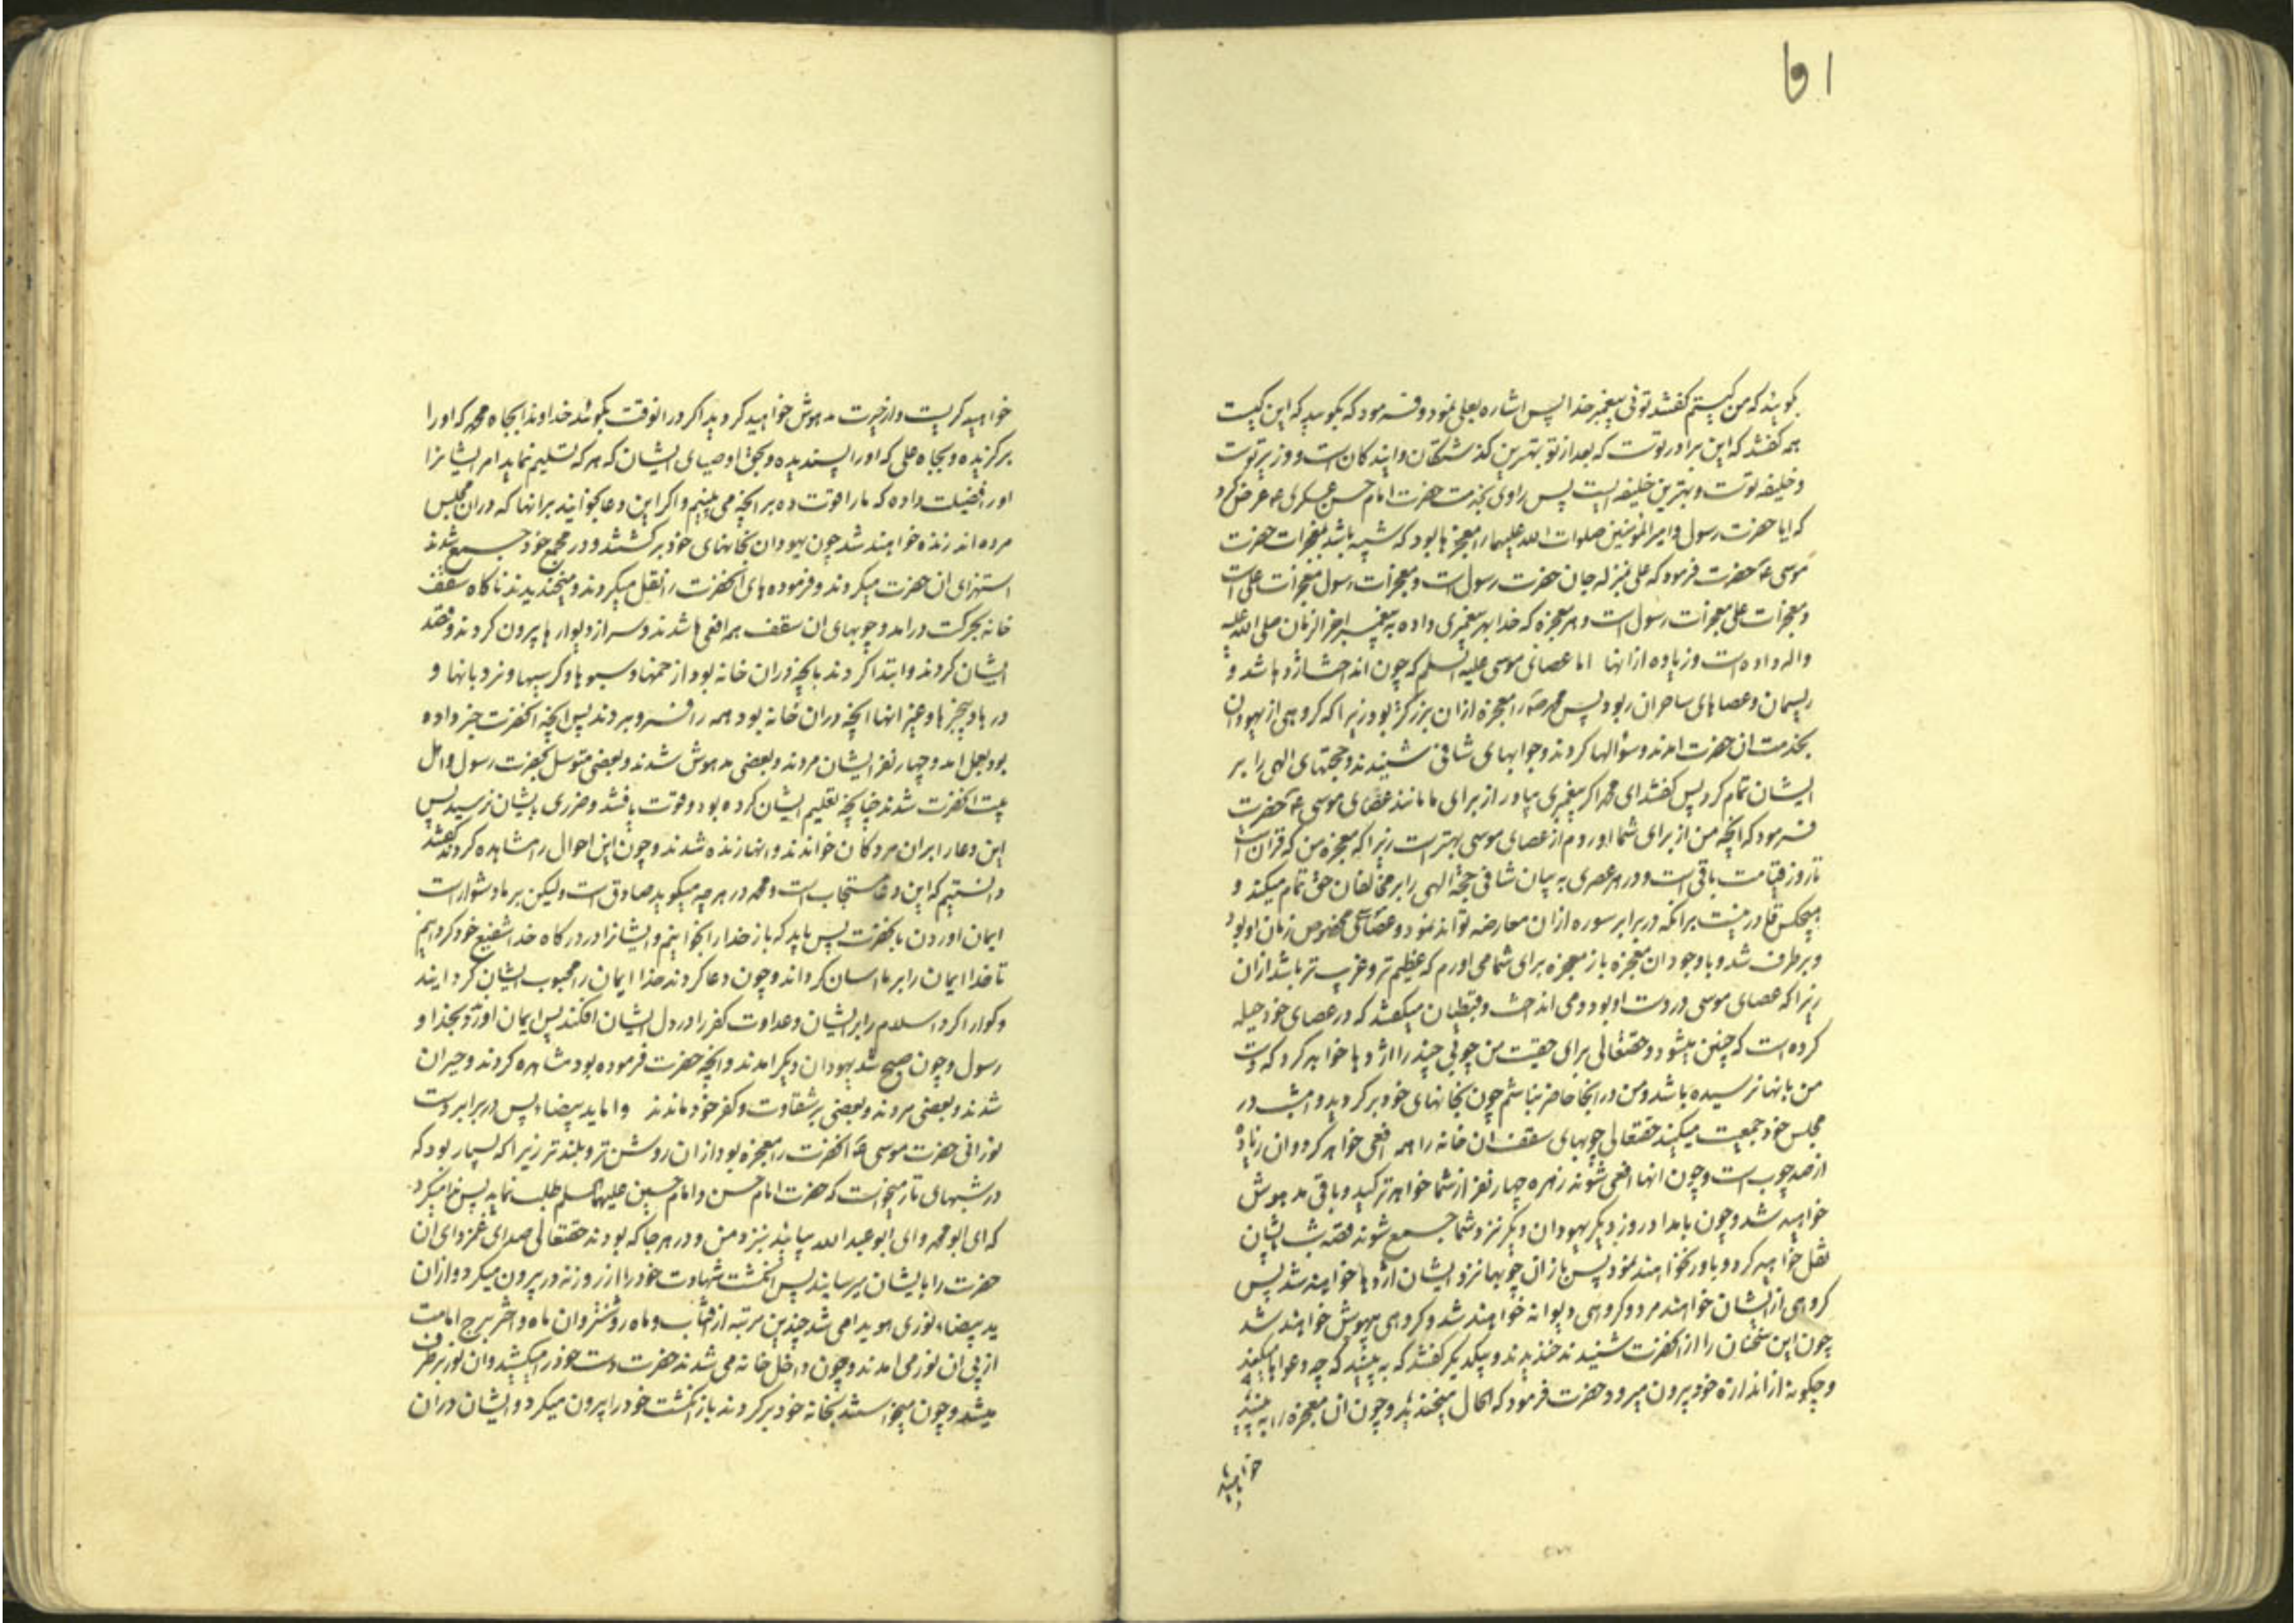 ۱۵۱
بکوئید که من کیستم کفتند توئی پیغمبر خدا پس اشاره بعلی نمود و فرمود که بکوئید که این کیست
همه کفتند که این برادر توست که بعد از تو بهترین کذشتکان و ایندکان است و وزیر توست
و خلیفه توست و بهترین خلیفه ایست پس راوی بخدمت حضرت امام حسن عسکری ع عرض کرد
که ایا حضرت رسول و امیر المؤمنین صلوات الله علیهما را معجزها بود که شبیه باشد بمعجزات حضرت
موسی ع حضرت فرمود که علی بمنزله جان حضرت رسول است و معجزات رسول معجزات علی است
و معجزات علی معجزات رسول است و هر معجزه که خدا بهر پیغمبری داده به پیغمبر اخر الزمان صلی الله علیه
واله داده است و زیاده از انها اما عصای موسی علیه السلم که چون انداخت اژدها شد و
ریسمان و عصاهای ساحران ربود پس محمد ص را معجزه ازان بزرکتر بود زیرا که کروهی از یهودان
بخدمت ان حضرت امدند و سؤالها کردند و جوابهای شافی شنیدند و حجتهای الهی را بر
ایشان تمام کرد پس کفتند ای محمد اکر پیغمبری بیاور از برای ما مانند عصای موسی ع حضرت
فرمود که انچه من از برای شما اوردم از عصای موسی بهتر است زیرا که معجزه من که قران است
تا روز قیامت باقی است و در هر عصری به بیان شافی حجة الهی را بر مخالفان حق تمام میکند و
هیچکس قادر نیست بر انکه در برابر سوره ازان معارضه تواند نمود و عصای موسی مخصوص زمان او بود
و برطرف شد و با وجود ان معجزه باز معجزه برای شما می اورم که عظیم تر و غریب تر باشد ازان
زیرا که عصای موسی در دست او بود و می انداخت و قبطیان میکفتند که در عصای خود حیله
کرده است که چنین میشود و حقتعالی برای حقیت من چوبی چند را اژدها خواهد کرد که دست
من بانها نرسیده باشد و من در انجا حاضر نباشم چون بخانهای خود برکردید و امشب در
مجلس خود جمعیت میکنید حقتعالی چوبهای سقف ان خانه را همه افعی خواهد کرد و ان زیاده
از صد چوب است و چون انها افعی شوند زهره چهار نفر از شما خواهد ترکید و باقی مدهوش
خواهید شد و چون بامداد روز دیکر یهودان دیکر نزد شما جمع شوند قصه شب بایشان
نقل خواهید کرد و باور نخواهند نمود پس باز ان چوبها نزد ایشان اژدها خواهند شد پس
کروهی از ایشان خواهند مرد و کروهی دیوانه خواهند شد و کروهی بیهوش خواهند شد
چون این سخنان را از انحضرت شنیدند خندیدند و بیکدیکر کفتند که به بینید که چه دعواها میکند
و چکونه از اندازه خود بیرون میرود حضرت فرمود که الحال میخندید و چون ان معجزه را به بینید
خواهید
خواهید کریست و از حیرت مدهوش خواهید کردید اکر در انوقت بکوئید خداوندا بجاه محمد که او را
برکزیده و بجاه علی که او را پسندیده و بحق اوصیای ایشان که هر که تسلیم نماید امر ایشانرا
او را فضیلت داده که ما را قوت ده بر انچه می بینیم و اکر این دعا بخوانید بر انها که در ان مجلس
مرده اند زنده خواهند شد چون یهودان بخانهای خود برکشتند و در مجمع خود جمع شدند
استهزای ان حضرت میکردند و فرمودهای انحضرت را نقل میکردند و میخندیدند ناکاه سقف
خانه بحرکت درامد و چوبهای ان سقف همه افعی ها شدند و سر از دیوارها بیرون کردند و قصد
ایشان کردند و ابتدا کردند بانچه در ان خانه بود از خمها و سبوها و کرسیها و نردبانها و
درها و پنجرها و غیر انها انچه دران خانه بود همه را فرو بردند پس انچه انحضرت خبر داده
بود بعمل امد و چهار نفر ایشان مردند و بعضی مدهوش شدند و بعضی متوسل بحضرت رسول و اهل
بیت انحضرت شدند چنانچه تعلیم ایشان کرده بود و قوت یافتند و ضرری بایشان نرسید پس
این دعا را بران مردکان خواندند و انها زنده شدند و چون این احوال را مشاهده کردند کفتند
دانستیم که این دعا مستجاب است و محمد در هر چه میکوید صادق است ولیکن بر ما دشوار است
ایمان اوردن بانحضرت پس باید که باز خدا را بخوانیم و ایشانرا در درکاه خدا شفیع خود کردانیم
تا خدا ایمان را بر ما اسان کرداند و چون دعا کردند خدا ایمان را محبوب ایشان کردانید
و کوارا کرد اسلام را بر ایشان و عداوت کفر را در دل ایشان افکند پس ایمان اوردند بخدا و
رسول و چون صبح شد یهودان دیکر امدند و انچه حضرت فرموده بود مشاهده کردند و حیران
شدند و بعضی مردند و بعضی بر شقاوت و کفر خود ماندند و اما ید بیضا پس در برابر دست
نورانی حضرت موسی ع انحضرت را معجزه بود ازان روشن تر و بلندتر زیرا که بسیار بود که
در شبهای تار میخواست که حضرت امام حسن و امام حسین علیهما السلم طلب نماید پس ندا میکرد
که ای ابو محمد و ای ابو عبد الله بیائید بنزد من و در هر جا که بودند حقتعالی صدای غمزدای ان
حضرت را بایشان میرسانید پس انکشت شهادت خود را از روزنه در بیرون میکرد و ازان
ید بیضا نوری هویدا می شد چندین مرتبه از افتاب و ماه روشنتر و ان ماه و اختر برج امامت
از پی ان نور می امدند و چون داخل خانه می شدند حضرت دست خود را میکشید و ان نور برطرف
میشد و چون میخواستند بخانه خود برکردند باز انکشت خود را بیرون میکرد و ایشان دران